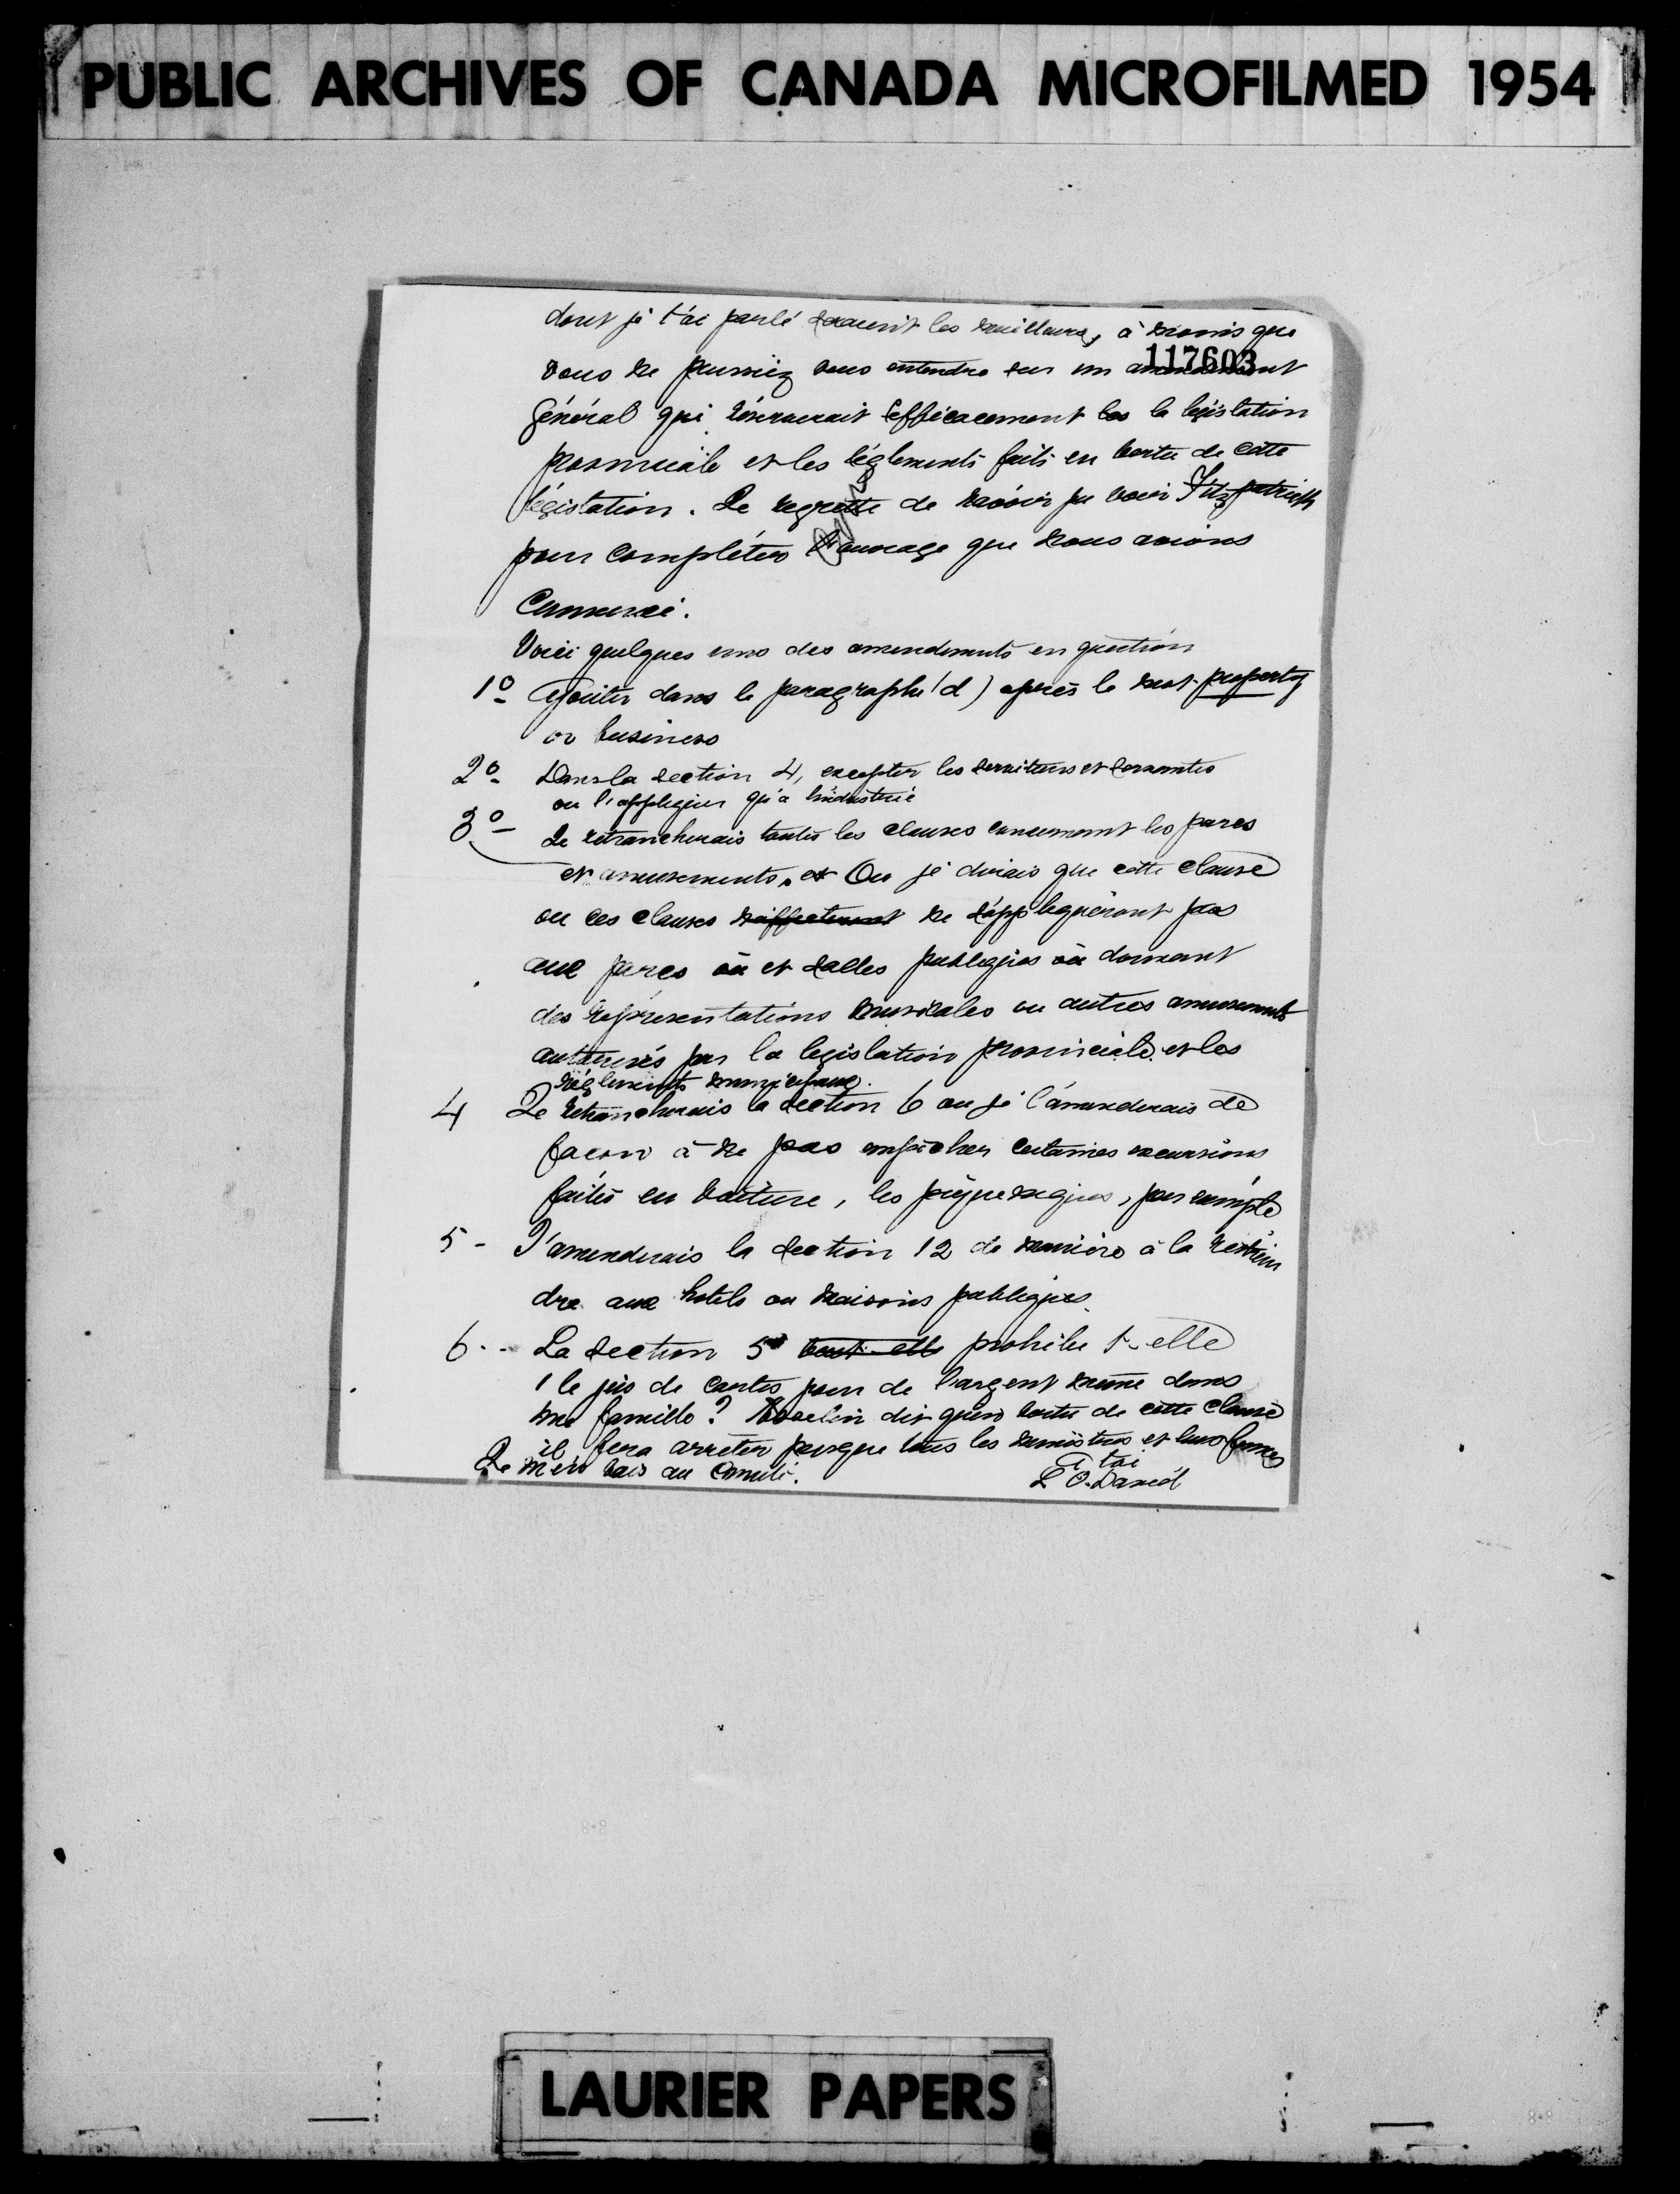 PUBLIC ARCHIVES OF CANADA MICROFILMED 1954
dont je t'ai parlé seraient les meilleurs, à moins que
117603
vous ne pussiez vous entendre sur un amendement
général qui réserverait efficacement les la législation
provinciale et les règlements faits en vertu de cette
législation. Je regrette de n'avoir pu voir Fitzpatrick
pour compléter l'ouvrage que nous avions
commencé.
Voici quelques uns des amendements en question
1º Ajouter dans le paragraphe (d) après le mot property
or business
2º Dans la section 4, excepter les serviteurs et servantes
ou l'appliquer qu'à l'industrie
3º Je retrancherais toutes les clauses concernant les parcs
et amusements. et Ou je dirais que cette clause
ou ces clauses n'affecteront ne s'appliqueront pas
aux parcs ou et salles publiques où donnant
des représentations musicales ou autres amusements
autorisés par la législation provinciale et les
règlements municipaux.
4 Je retrancherais la section 6 ou je l'amenderais de
façon à ne pas empêcher certaines excursions
faites en voiture, les piqueniques, par exemple
5 - J'amenderais la section 12 de manière à la restrein
dre aux hotels ou maisons publiques
6 - La section 5 veut-elle prohibe t-elle
le jeu de cartes pour de l'argent même dans
une famille? dit qu'en vertu de cette clause
il fera arrêter presque tous les ministres et leurs femmes
Je m'en vais au Comité.
A toi
L O. David
LAURIER PAPERS